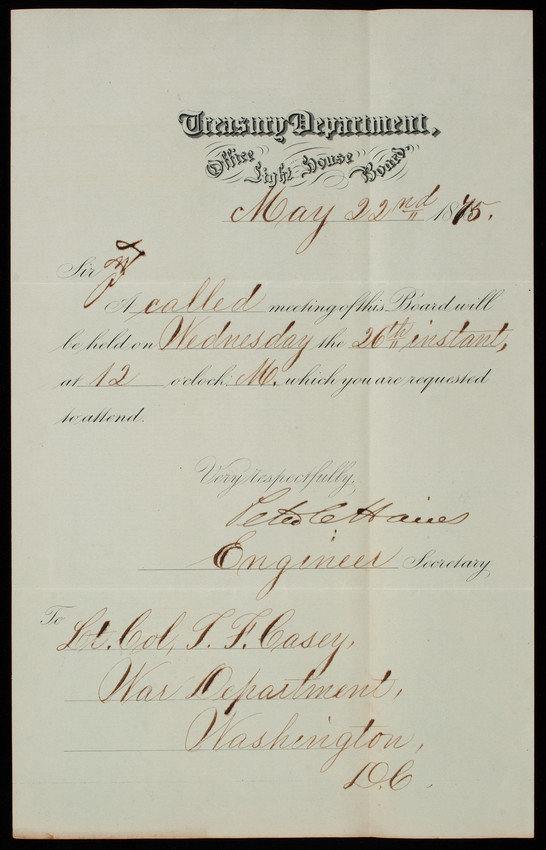 Treasury Department,
Office Light-House Board
May 22nd 1875.
Sir
A called meeting of this Board will
be held on Wednesday the 26th instant,
at 12 o'clock M. which you are requested
to attend.
Very respectfully,
Peter C Haines
Engineer Secretary,
To
Lt. Col, T. F. Casey,
War Department,
Washington,
D.C.